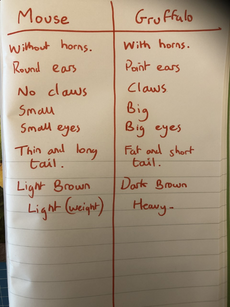 Mouse Gruffulo
Without horns. With horns.
Round ears Point ears
No claws Claws
Small Big
Small eyes Big eyes
Thin and long Fat and short
tail. tail.
Light Brown Dark Brown
Light (weight) Heavy.